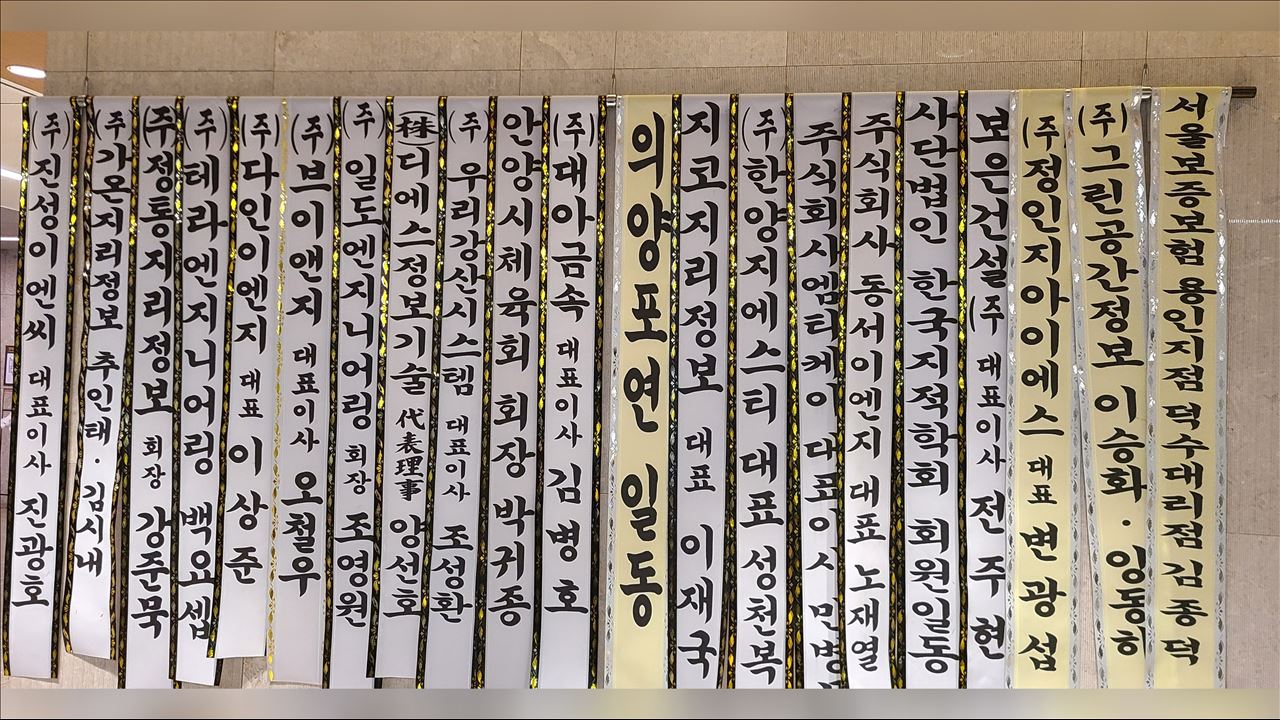 (주)진성이엔씨 대표이사 진광호
(주)가온지리정보 추인태 · 김시내
(주)정통지리정보 회장 강준묵
(주)테라엔지니어링 백요셉
(주)다인이엔지 대표 이상준
(주)브이앤지 대표이사 오철우
(주)일도엔지니어링 회장 조영원
(株)디에스정보기술 代表理事 양선호
(주)우리강산시스템 대표이사 조성환
안양시체육회 회장 박귀종
(주)대아금속 대표이사 김병호
의양포연 일동
지코지리정보 대표 이재국
(주)한양지에스티 대표 성천복
주식회사엠티케이 대표이사 민병
주식회사 동서이엔지 대표 노재열
사단법인 한국지적학회 회원일동
보은건설(주 대표이사 전주현
(주)정인지아이에스 대표 변광섭
(주)그린공간정보 이승화 · 임동하
서울보증보험 용인지점 덕수대리점 김종덕